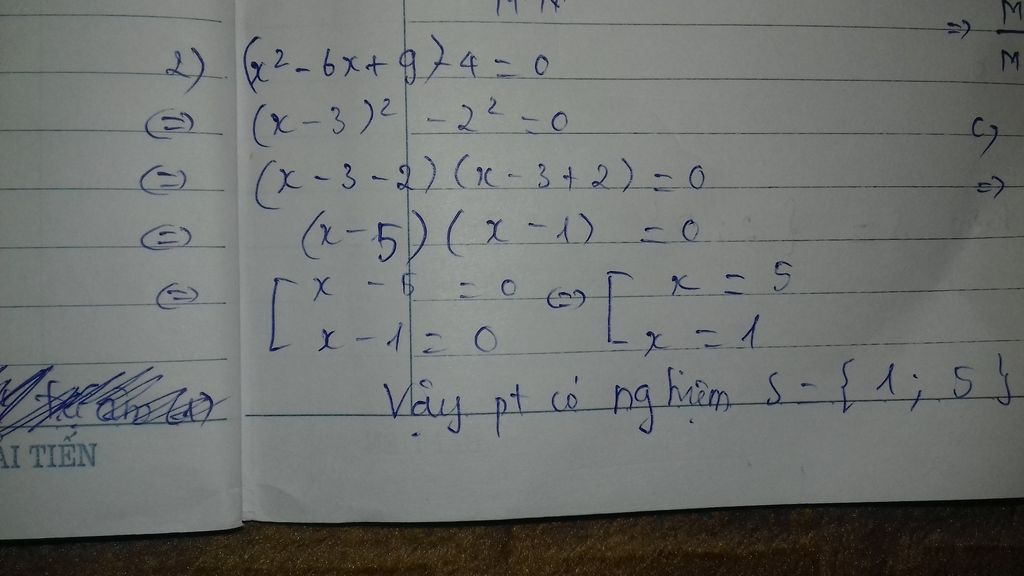 => M
M
2) (x² - 6x + 9) - 4 = 0
(=) (x - 3)² - 2² = 0
c)
(=) (x - 3 - 2) (x - 3 + 2) = 0
=>
(=) (x - 5) (x - 1) = 0
(=) [ x - 5 = 0 (=) [ x = 5
x - 1 = 0 x = 1
Vậy pt có nghiệm S = { 1 ; 5 }
ẢI TIẾN